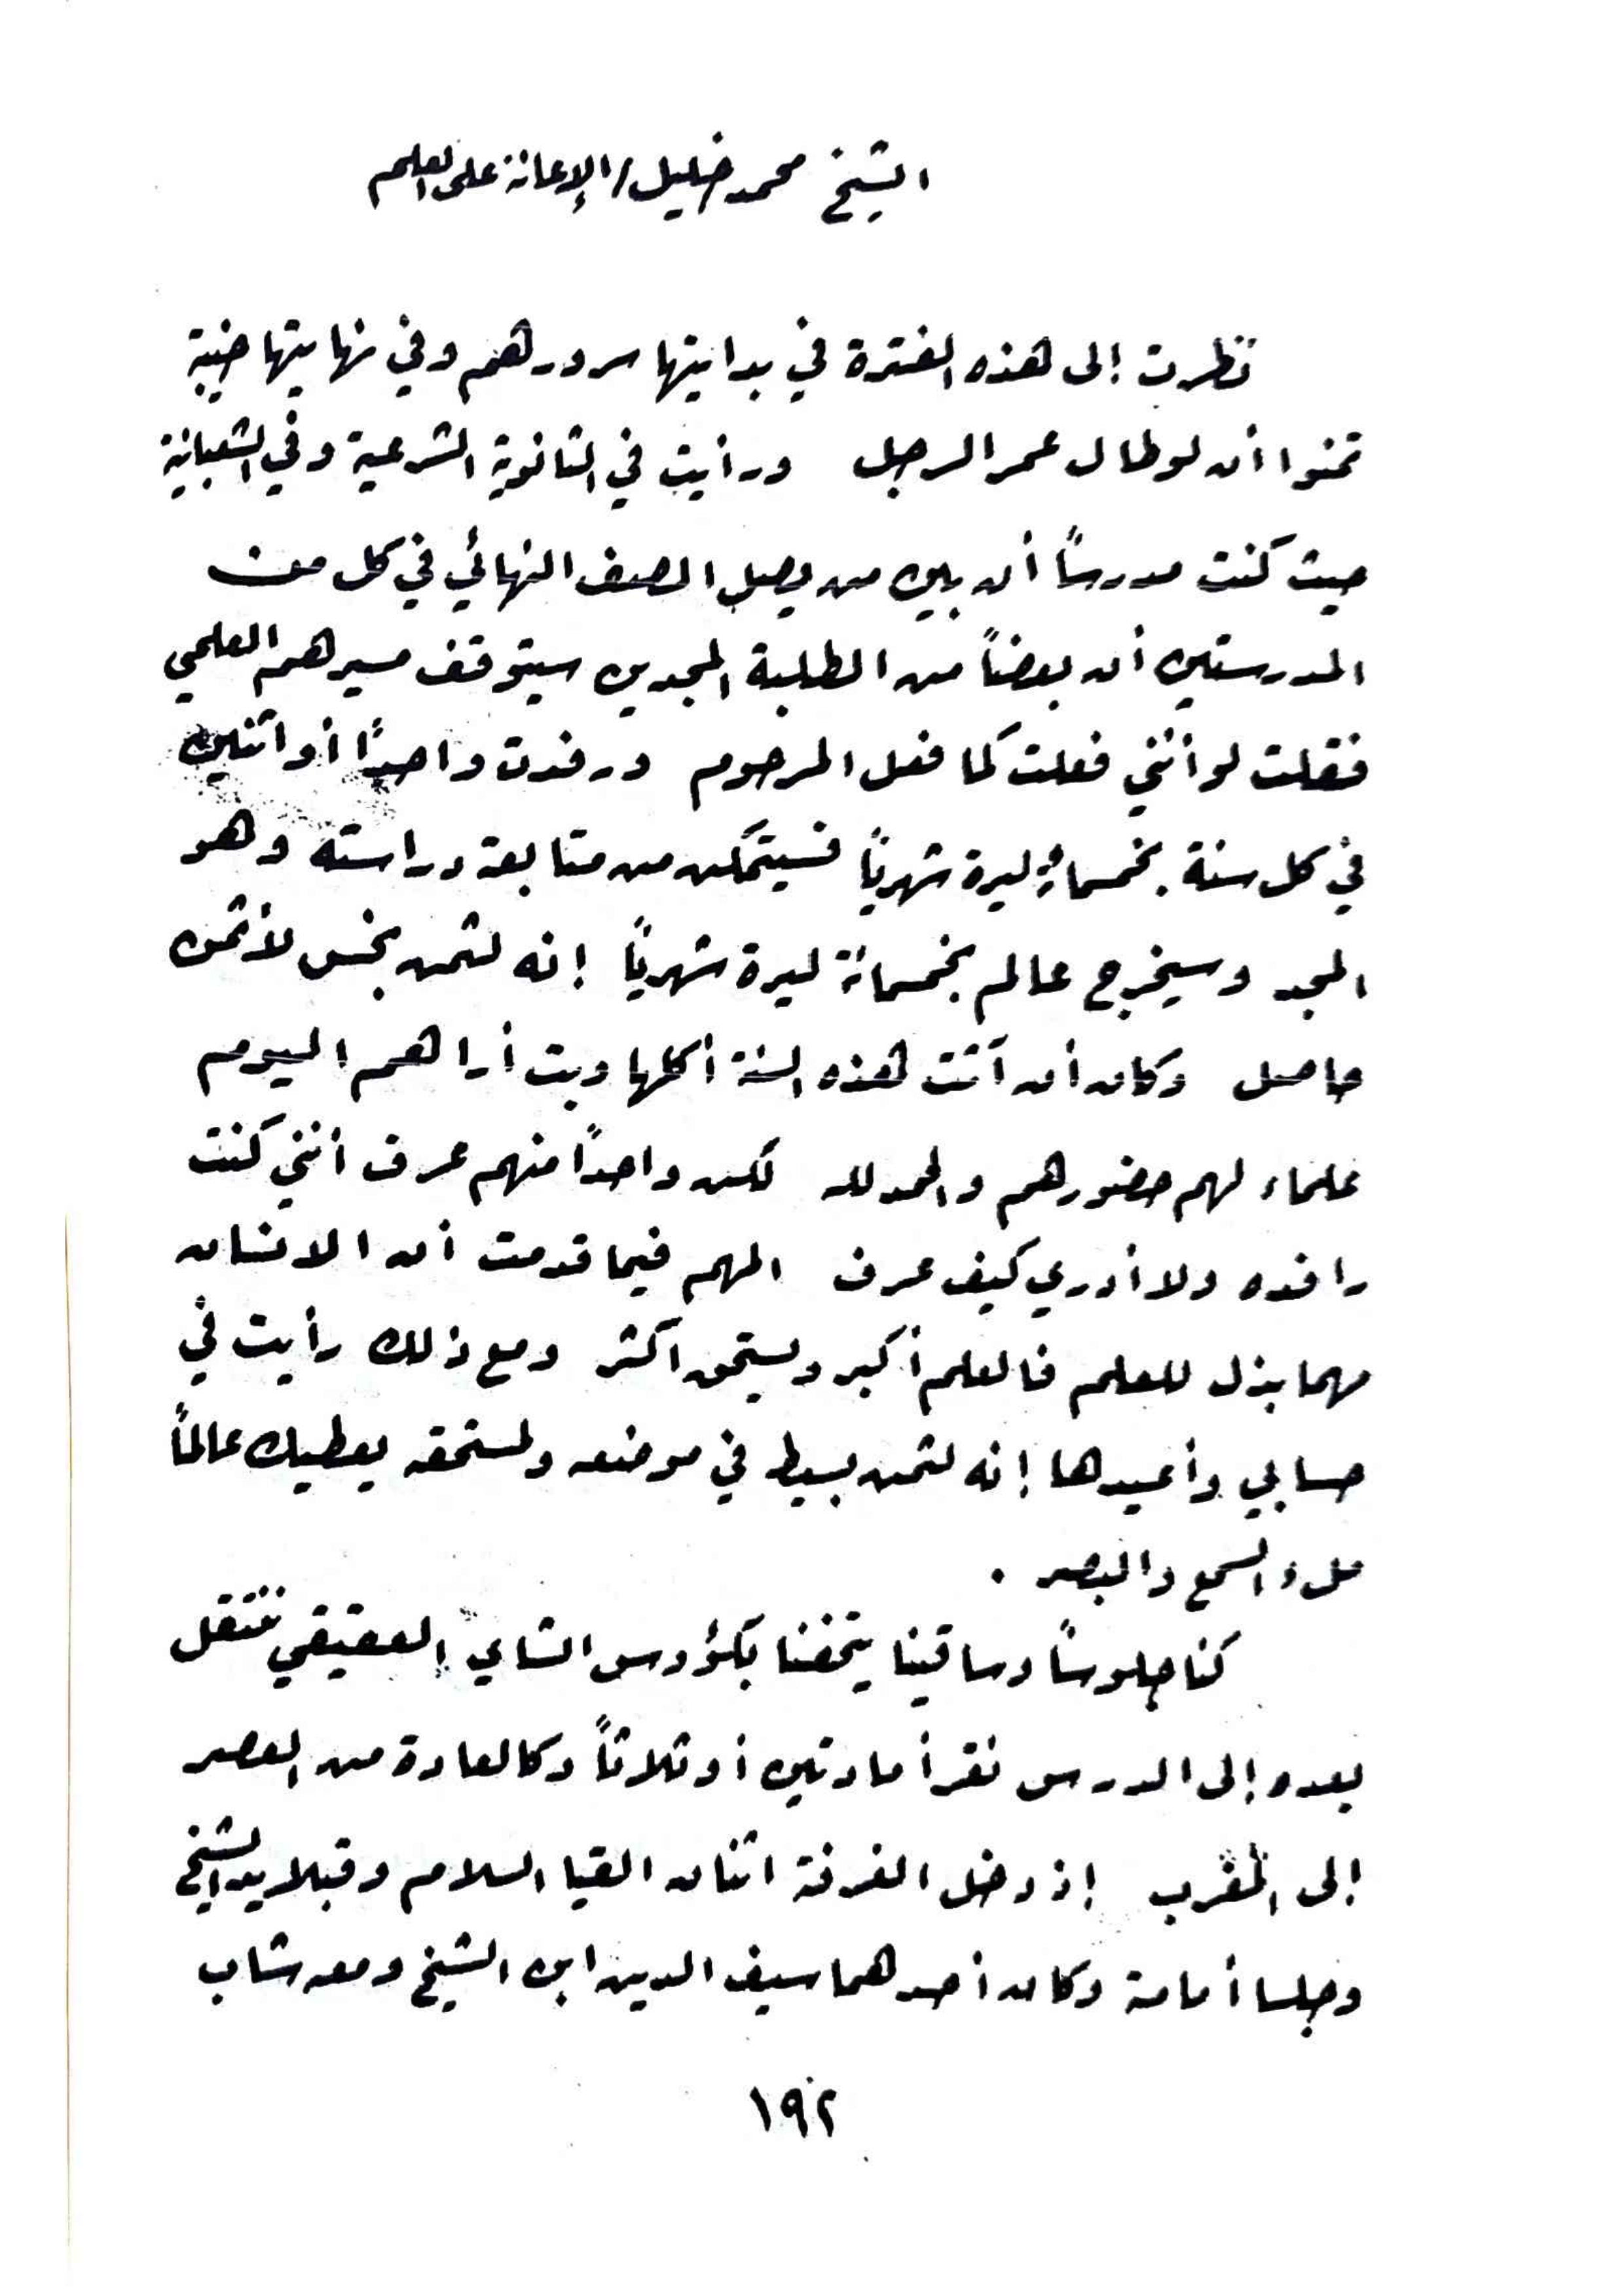 الشيخ محمد خليل / الإعانة على العلم
نظرت إلى هذه الفترة في بدايتها سرورهم وفي نهايتها خيبة
تمنوا أن لو طال عمر الرجل ورأيت في الثانوية الشرعية وفي الشعبانية
حيث كنت مدرساً أن بين من يصل الصف النهائي في كل من
المدرستين أن بعضاً من الطلبة المجدين سيتوقف مسيرهم العلمي
فقلت لو أنني فعلت كما فعل المرحوم ورفدت واحداً أو اثنين
في كل سنة بخمسمائة ليرة شهرياً فسيتمكن من متابعة دراسته وهو
المجد وسيخرج عالم بخمسمائة ليرة شهرياً إنه لثمن بخس لأثمن
حاصل وكان أن آتت هذه السنة أكلها وبت أراهم اليوم
علماء لهم حضورهم والحمد لله لكن واحداً منهم عرف أنني كنت
رافده ولا أدري كيف عرف المهم فيما قدمت أن الانسان
مهما بذل للعلم فالعلم أكبر ويستحق أكثر ومع ذلك رأيت في
حسابي وأعيدها إنه لثمن بسيط في موضعه ولمستحقه يعطيك عالماً
ملء السمع والبصر .
كنا جلوساً وساقينا يتحفنا بكؤوس الشاي العقيقي ننتقل
بعده إلى الدرس نقرأ مادتين أو ثلاثاً وكالعادة من العصر
إلى المغرب إذ دخل الغرفة اثنان القيا السلام وقبلا يد الشيخ
وجلسا أمامه وكان أحدهما سيف الدين ابن الشيخ ومعه شاب
١٩٢